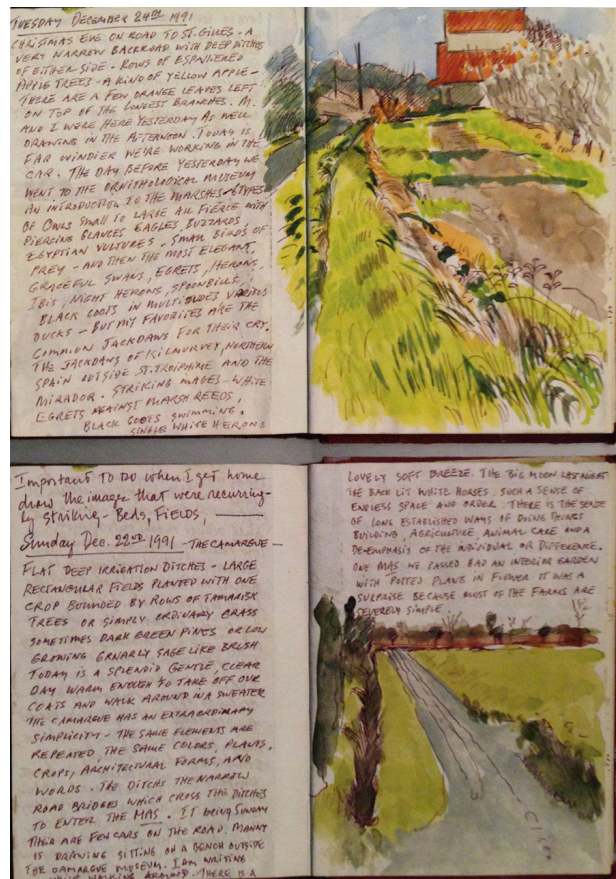 TUESDAY DECEMBER 24TH 1991
CHRISTMAS EVE ON ROAD TO ST. GILLES - A
VERY NARROW BACKROAD WITH DEEP DITCHES
OF EITHER SIDE - ROWS OF ESPANERED
APPLE TREES - A KIND OF YELLOW APPLE -
THERE ARE A FEW ORANGE LEAVES LEFT
ON TOP OF THE LONGEST BRANCHES. M.
AND I WERE HERE YESTERDAY AS WELL
DRAWING IN THE AFTERNOON. TODAY IS
FAR WINDIER WE'RE WORKING IN THE
CAR. THE DAY BEFORE YESTERDAY WE
WENT TO THE ORNITHOLOGICAL MUSEUM
AN INTRODUCTION TO THE MARSHES - 6 TYPES
OF OWLS SMALL TO LARGE ALL FIERCE WITH
PIERCING GLANCES EAGLES, BUZZARDS
EGYPTIAN VULTURES - SMALL BIRDS OF
PREY - AND THEN THE MOST ELEGANT,
GRACEFUL SWANS, EGRETS, HERONS
IBIS, NIGHT HERONS, SPOONBILLS
BLACK COOTS IN MULTITUDES VARIOUS
DUCKS - BUT MY FAVORITES ARE THE
COMMON JACKDAWS FOR THEIR CRY.
THE JACKDAWS OF KILMURVEY, NORTHERN
SPAIN OUTSIDE ST. TROIPHIME AND THE
MIRADOR. STRIKING IMAGES - WHITE
EGRETS AGAINST MARSH REEDS,
BLACK COOTS SWIMMING,
SINGLE WHITE HERONS
Important TO DO when I get home
draw the images that were recurring-
ly striking - Beds, Fields,
Sunday Dec. 22nd 1991 - THE CAMARGUE -
FLAT DEEP IRRIGATION DITCHES - LARGE
RECTANGULAR FIELDS PLANTED WITH ONE
CROP BOUNDED BY ROWS OF TAMARISK
TREES OR SIMPLY ORDINARY GRASS
SOMETIMES DARK GREEN PINES OR LOW
GROWING GNARLY SAGE LIKE BRUSH
TODAY IS A SPLENDID GENTLE, CLEAR
DAY WARM ENOUGH TO TAKE OFF OUR
COATS AND WALK AROUND IN A SWEATER
THE CAMARGUE HAS AN EXTRAORDINARY
SIMPLICITY - THE SAME ELEMENTS ARE
REPEATED, THE SAME COLORS, PLANTS,
CROPS, ARCHITECTURAL FORMS, AND
WORDS. THE DITCHS THE NARROW
ROAD BRIDGES WHICH CROSS THE DITCHES
TO ENTER THE MAS. IT BEING SUNDAY
THEIR ARE FEW CARS ON THE ROAD. MANNY
IS DRAWING SITTING ON A BENCH OUTSIDE
THE CAMARGUE MUSEUM. I AM WRITING
WHILE WALKING AROUND. THERE IS A
LOVELY SOFT BREEZE. THE BIG MOON LAST NIGHT
THE BACK LIT WHITE HORSES. SUCH A SENSE OF
ENDLESS SPACE AND ORDER. THERE IS THE SENSE
OF LONG ESTABLISHED WAYS OF DOING THINGS
BUILDING, AGRICULTURE, ANIMAL CARE AND A
DE-EMPHASIS OF THE INDIVIDUAL OR DIFFERENCE.
ONE MAS WE PASSED HAD AN INTERIOR GARDEN
WITH POTTED PLANTS IN FLOWER IT WAS A
SURPRISE BECAUSE MOST OF THE FARMS ARE
SEVERELY SIMPLE.